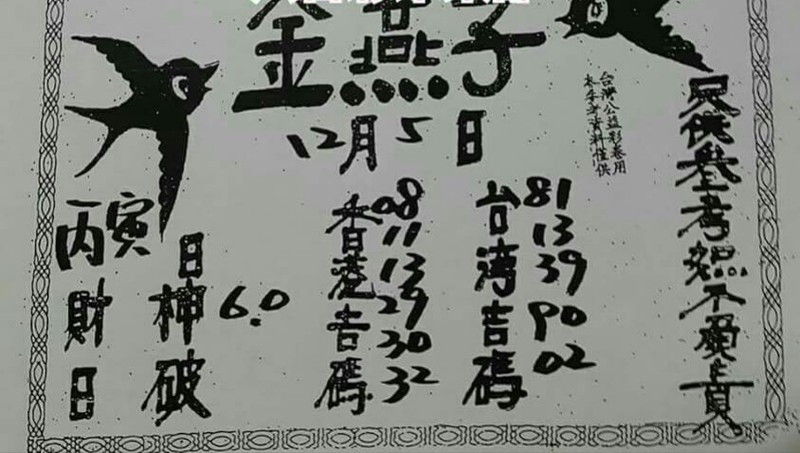 金燕子
12月5日
台灣公益彩卷用
本手資料僅供
只供參考恕不負責
台湾吉碼
81
13
39
90
02
香港吉碼
08
11
13
29
30
32
丙寅日
財神破日
6.0